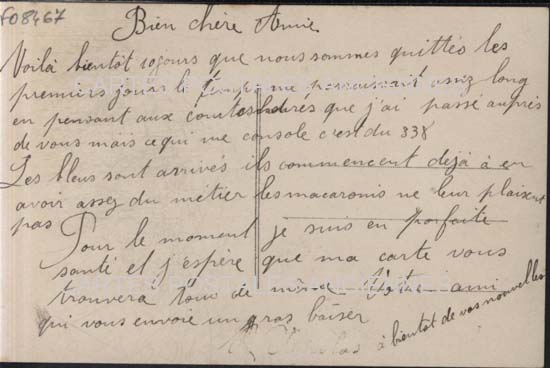 F08467
Bien chère Amie
Voilà bientôt 10 jours que nous sommes quittés les
premiers jours le temps me paraissait assez long
en pensant aux courtes heures que j'ai passé auprès
de vous mais ce qui me console c'est du 338
Les bleus sont arrivés ils commencent déjà à en
avoir assez du métier les macaronis ne leur plaisent
pas
Pour le moment je suis en parfaite
santé et j'espère que ma carte vous
trouvera tous de même Votre ami
qui vous envoie un gros baiser
à bientôt de vos nouvelles